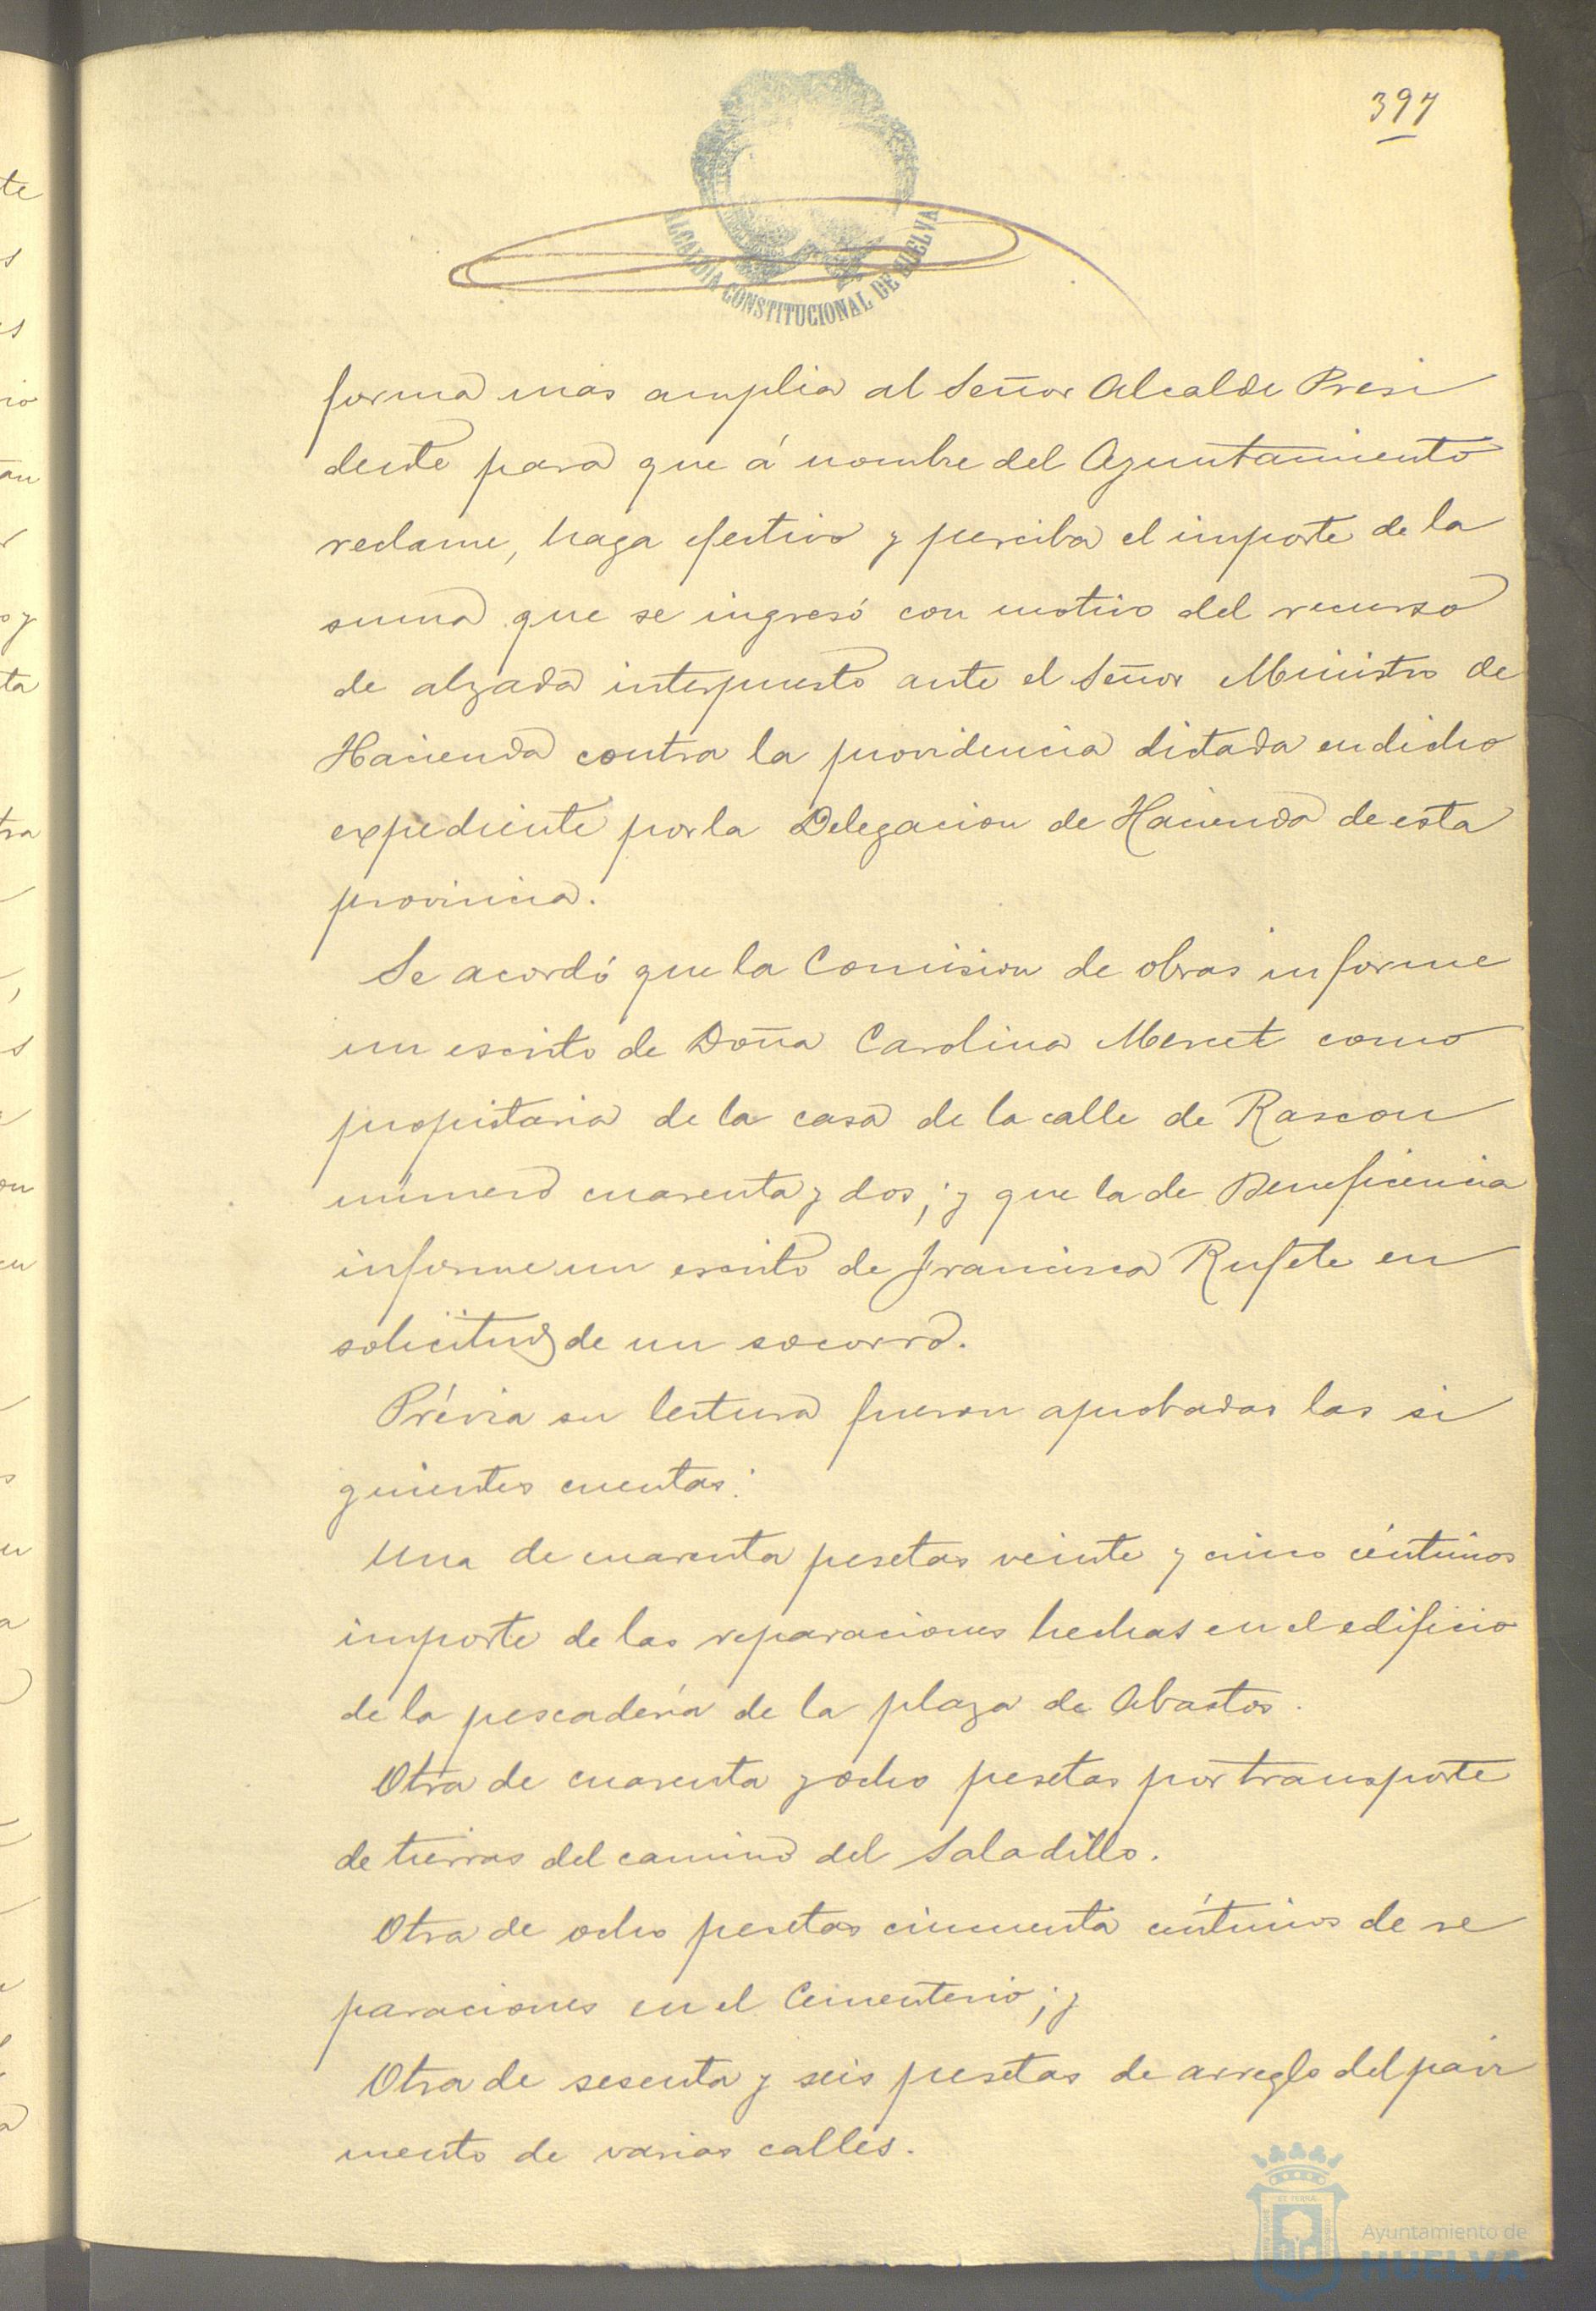 397
ALCALDIA CONSTITUCIONAL DE HUELVA
forma mas amplia al Señor Alcalde Presi
dente para que á nombre del Ayuntamiento
reclame, haga efectivo y perciba el importe de la
suma que se ingresó con motivo del recurso
de alzada interpuesto ante el Señor Ministro de
Hacienda contra la providencia dictada en dicho
expediente por la Delegacion de Hacienda de esta
provincia.
Se acordó que la Comision de obras informe
un escrito de Doña Carolina Mercet como
propietaria de la casa de la calle de Rascon
número cuarenta y dos; y que la de Beneficencia
informe un escrito de Francisca Rufete en
solicitud de un socorro.
Prévia su lectura fueron aprobadas las si
guientes cuentas:
Una de cuarenta pesetas veinte y cinco céntimos
importe de las reparaciones hechas en el edificio
de la pescadería de la plaza de Abastos.
Otra de cuarenta y ocho pesetas por transporte
de tierras del camino del Saladillo.
Otra de ocho pesetas cincuenta céntimos de re
paraciones en el Cementerio; y
Otra de sesenta y seis pesetas de arreglo del pavi
mento de varias calles.
Ayuntamiento de
HUELVA